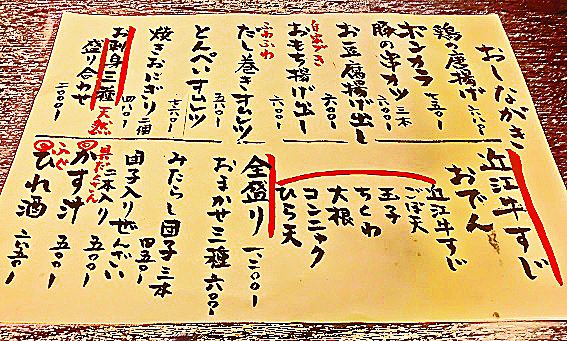 おしながき
鶏の唐揚げ 七五〇ー
ポンカラ
豚の串カツ 三本 六〇〇ー
お豆腐揚げ出し 六〇〇ー
おもち揚げ出し 六〇〇ー
ふわふわ
だし巻き 五五〇ー
とんぺい
焼きおにぎり 二個 四八〇ー
お刺身三種
盛り合わせ
天然
近江牛すじ
おでん
近江牛すじ
ごぼ天
玉子
ちくわ
大根
コンニャク
ひら天
全盛り 一、二〇〇ー
おまかせ三種 六〇〇ー
みたらし団子 三本 四五〇ー
団子入りぜんざい 五〇〇ー
具だくさん
かす汁 五〇〇ー
ふぐ
ひれ酒 六五〇ー